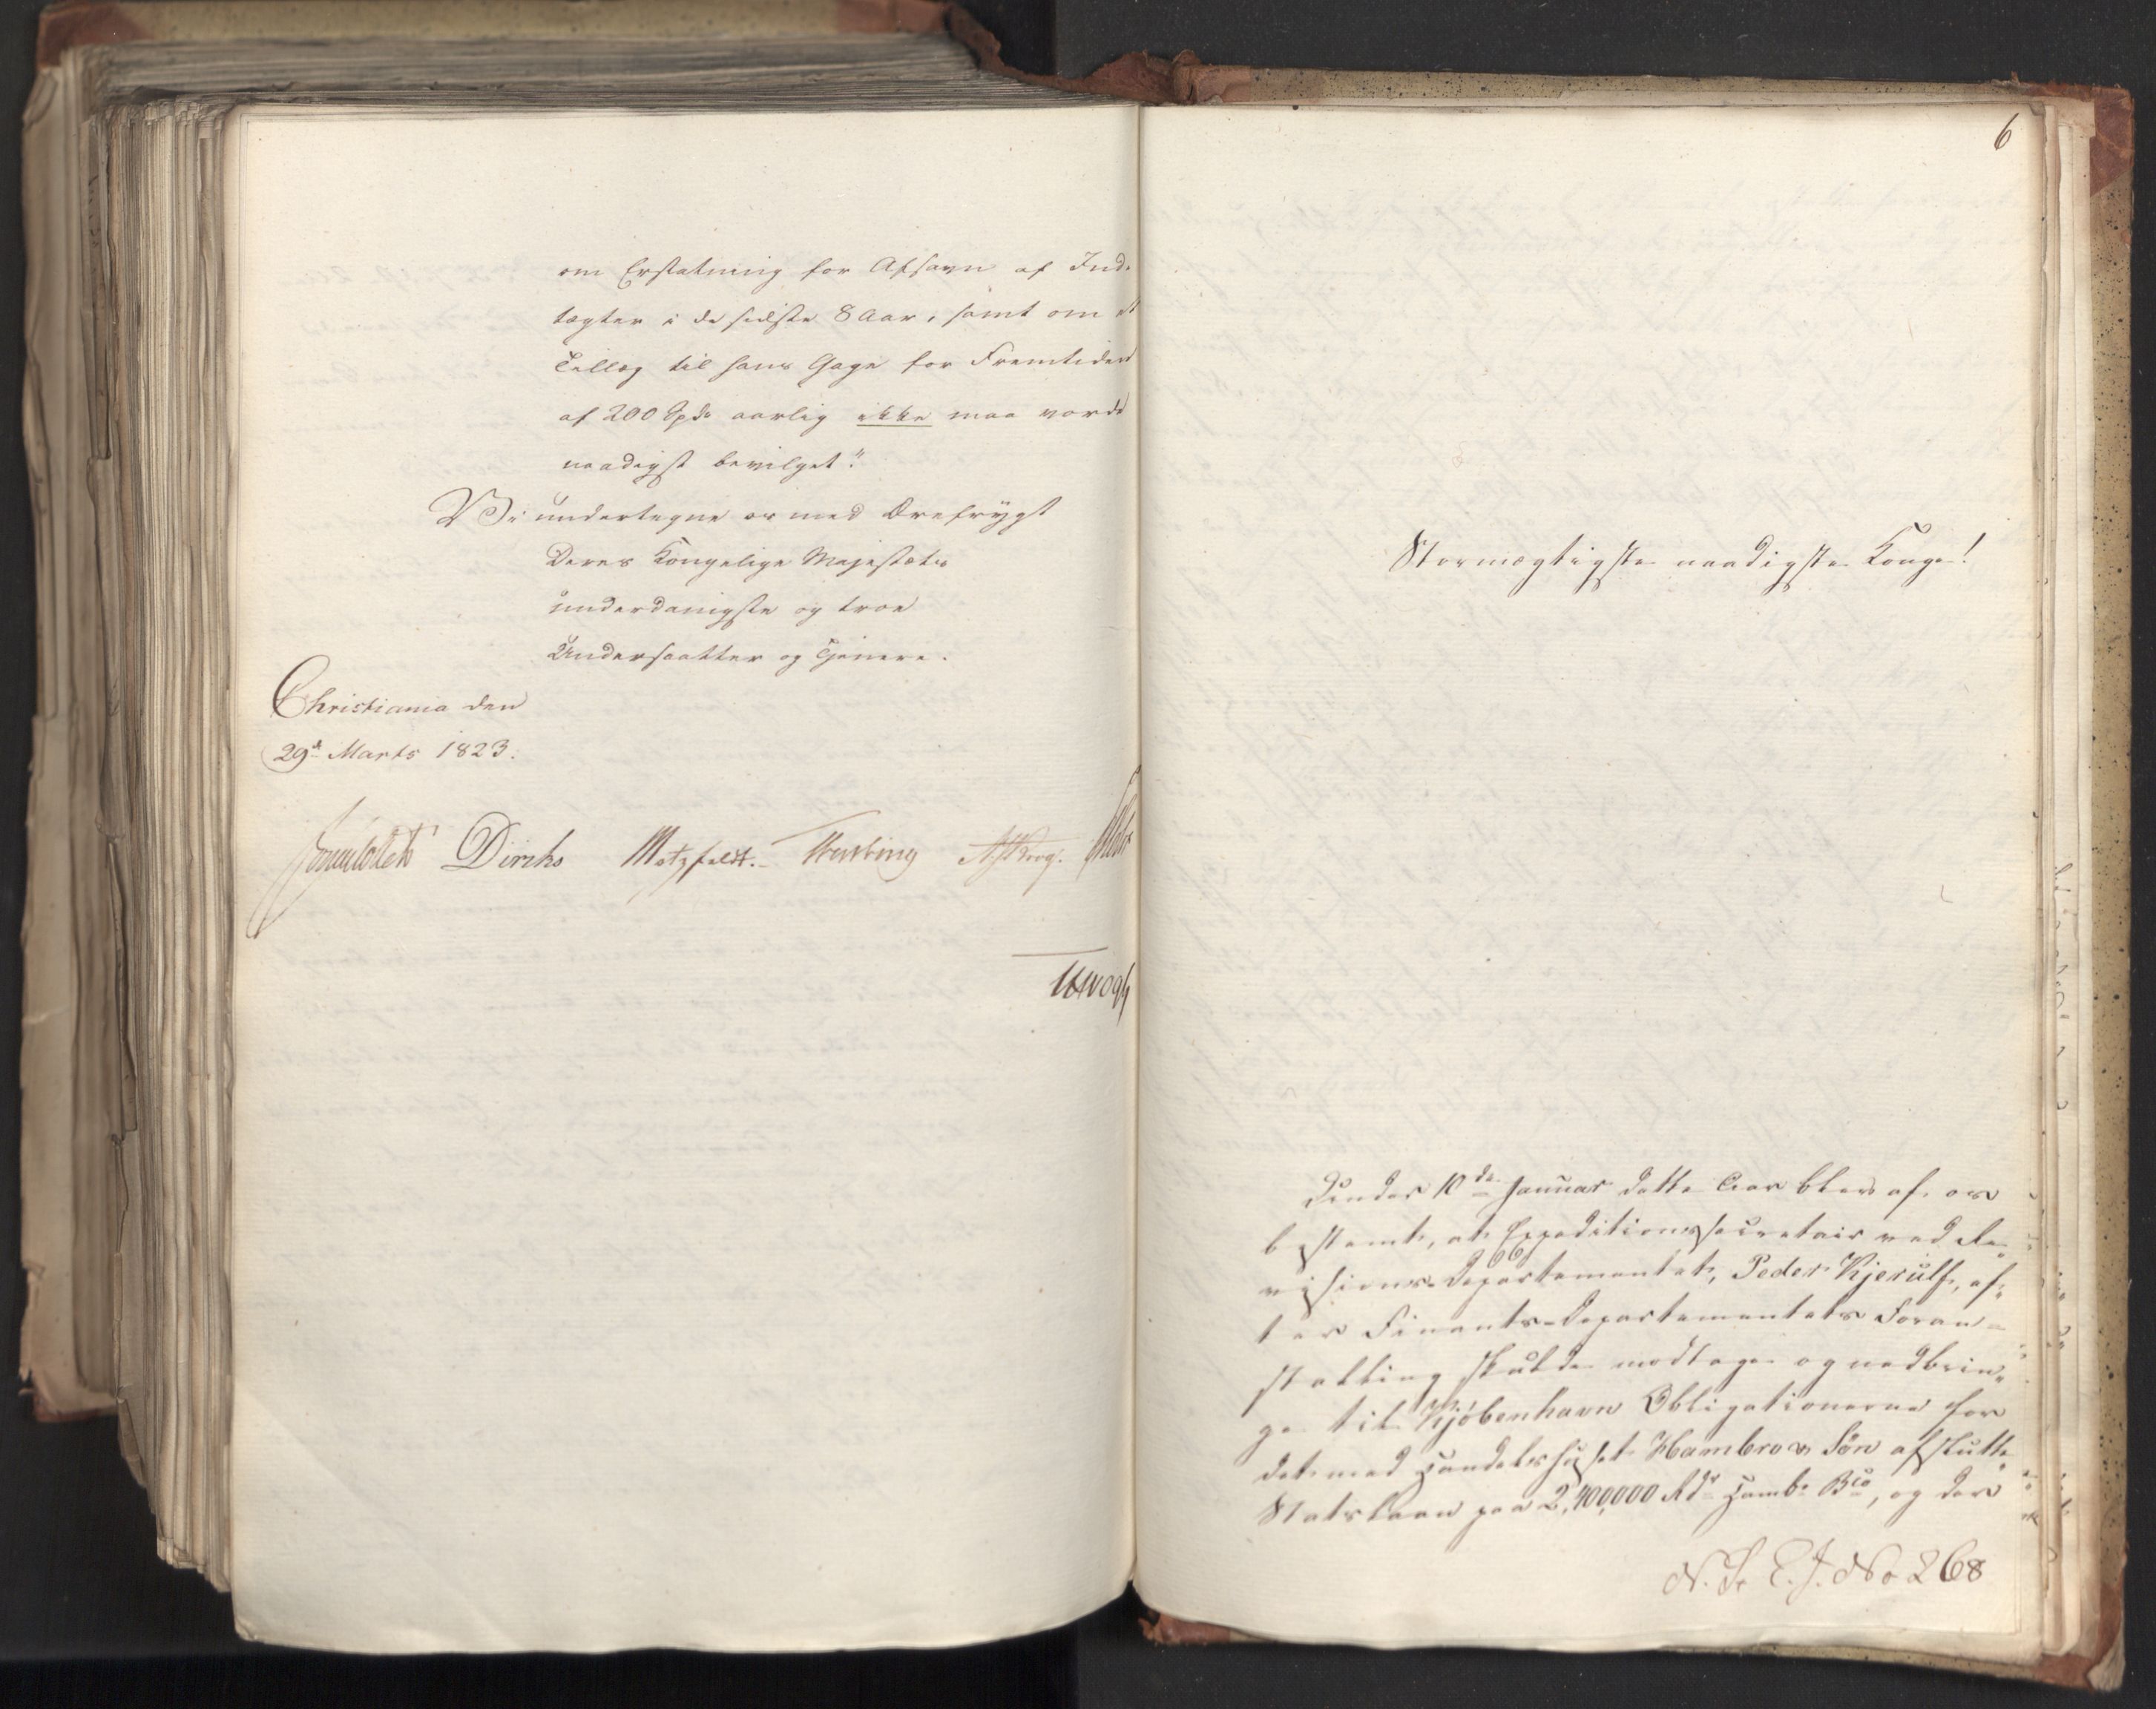 om Erstatning for Afsavn af Ind-
tægter i de sidste 8 Aar, samt om et
Tillæg til hans Gage for Fremtiden
af 200 Spd aarlig ikke maa vorde
naadigst bevilget."
Vi undertegne os med Ærefrygt
Deres Kongelige Majestæts
underdanigste og troe
Undersaatter og Tjenere.
Christiania den
29de Marts 1823.
Sommerhielm Diriks Motzfeldt. Treschow Krog.
6
Stormægtigste naadigste Konge!
Under 10de Januar dette Aar blev af os
bestemt, at Expeditionssecretair ved Re-
visions-Departementet, Peder Kjerulf, ef-
ter Finants-Departementets Foran-
staltning skulde modtage og nedbrin-
ge til Kjøbenhavn Obligationerne for
det med Handelshuset Hambro & Søn afslutte
Statslaan paa 2,400,000 Rdr Hambr Bco, og der
N. S. E. J. No 268